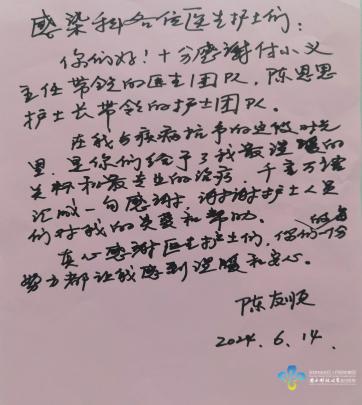 感染科各位医生护士们：
你们好！十分感谢付小义
主任带领的医生团队，陈思思
护士长带领的护士团队。
在我与疾病抗争的这段时光
里，是你们给予了我最温暖的
关怀和最专业的治疗，千言万语
汇成一句感谢，谢谢护士人员
们对我的关爱和帮助。
真心感谢医生护士们，你们的每一分
努力都让我感到温暖和安心。
陈友顺
2024.6.14.